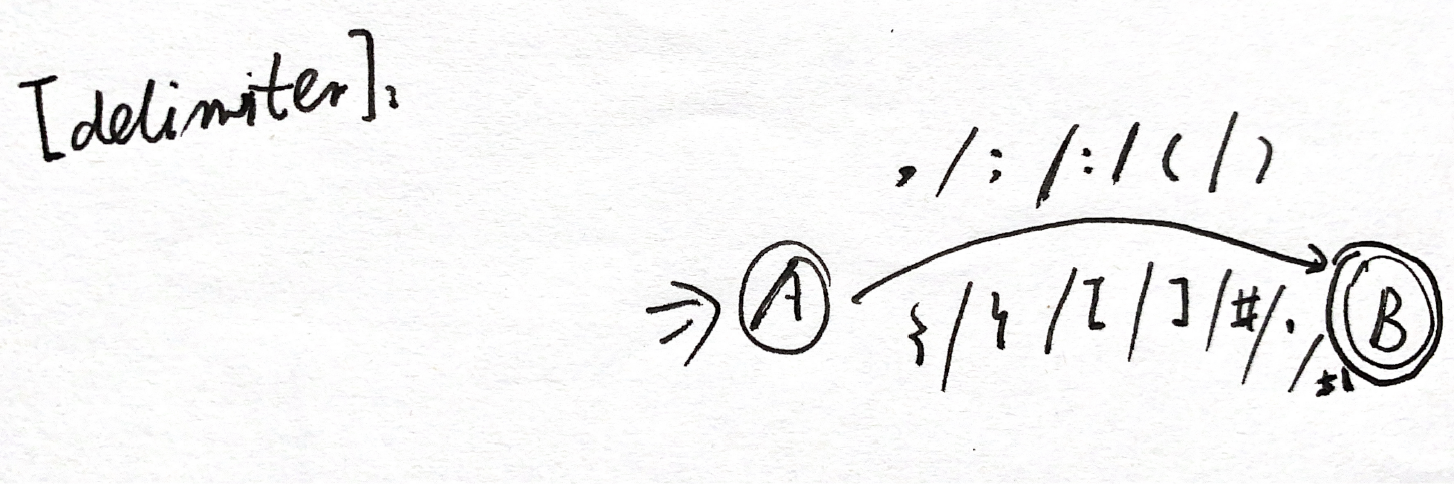 [delimiter]:
, / ; / : / ( / )
A
{ / } / [ / ] / # / .
B
/